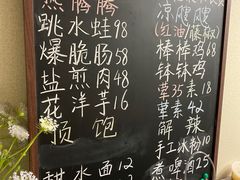 热腾腾
跳水蛙98
爆脆肠58
盐煎肉48
花洋芋16
损 饱
甜水面12
凉飕飕
(红油藤椒)
棒棒鸡68
钵钵鸡
荤35素18
荤素42
解辣
手工冰粉10
煮啤酒25